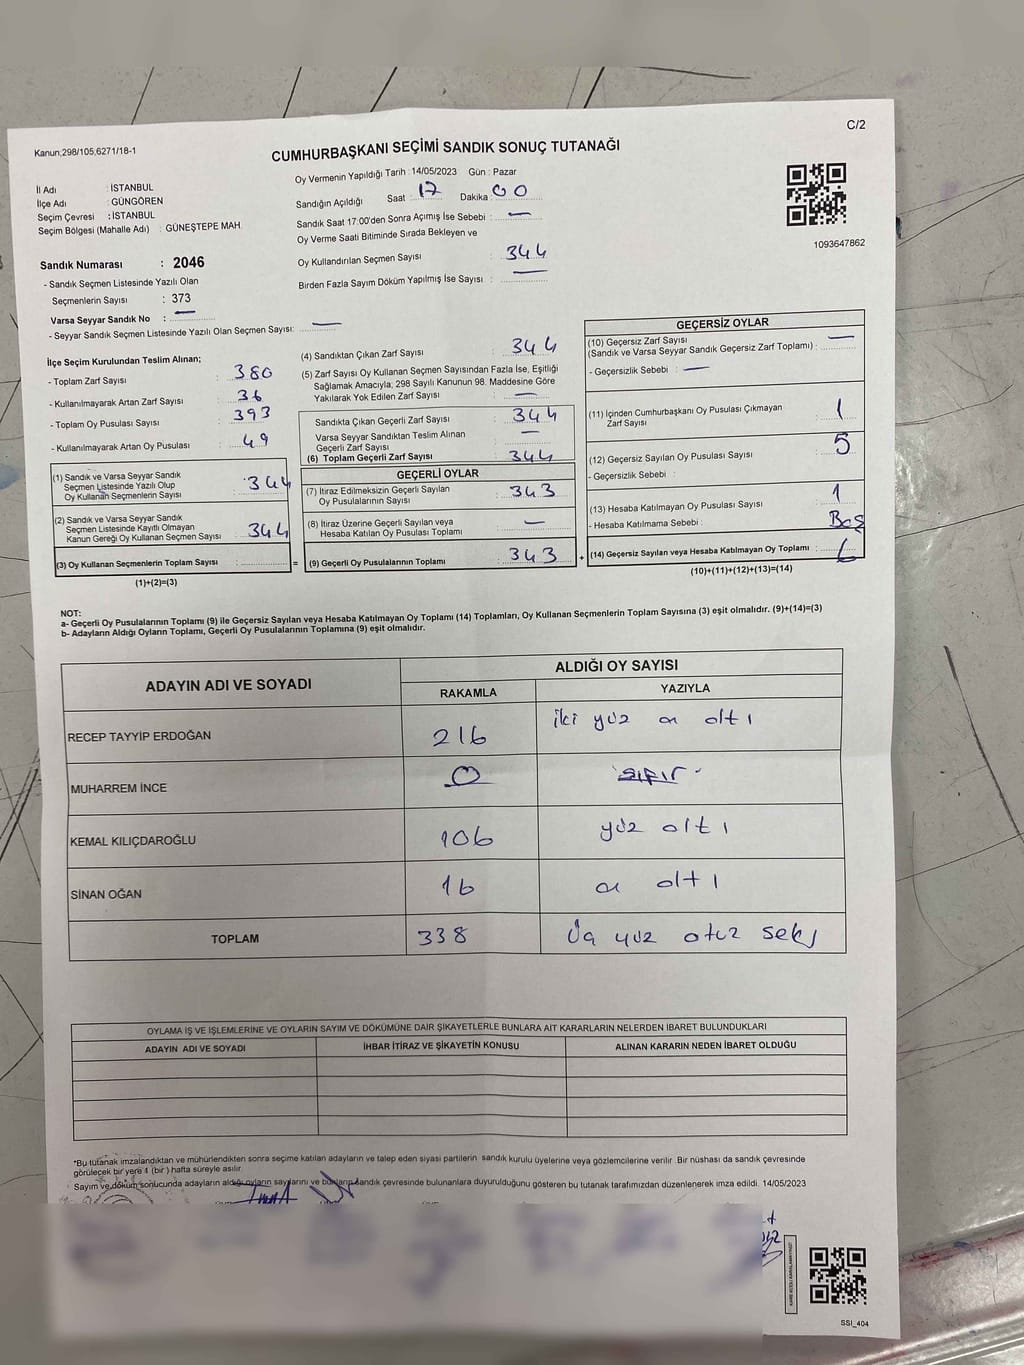 C/2
Kanun;298/105;6271/18-1
CUMHURBAŞKANI SEÇİMİ SANDIK SONUÇ TUTANAĞI
İl Adı : İSTANBUL
İlçe Adı : GÜNGÖREN
Seçim Çevresi : İSTANBUL
Seçim Bölgesi (Mahalle Adı) : GÜNEŞTEPE MAH
Sandık Numarası : 2046
- Sandık Seçmen Listesinde Yazılı Olan
Seçmenlerin Sayısı : 373
Varsa Seyyar Sandık No : —
- Seyyar Sandık Seçmen Listesinde Yazılı Olan Seçmen Sayısı: —
Oy Vermenin Yapıldığı Tarih : 14/05/2023 Gün : Pazar
Sandığın Açıldığı Saat : 17 Dakika : 00
Sandık Saat 17:00'den Sonra Açımış İse Sebebi : —
Oy Verme Saati Bitiminde Sırada Bekleyen ve
Oy Kullandırılan Seçmen Sayısı : 344
Birden Fazla Sayım Döküm Yapılmış İse Sayısı : —
1093647862
İlçe Seçim Kurulundan Teslim Alınan;
- Toplam Zarf Sayısı : 380
- Kullanılmayarak Artan Zarf Sayısı : 36
- Toplam Oy Pusulası Sayısı : 393
- Kullanılmayarak Artan Oy Pusulası : 49
(1) Sandık ve Varsa Seyyar Sandık
Seçmen Listesinde Yazılı Olup
Oy Kullanan Seçmenlerin Sayısı : 344
(2) Sandık ve Varsa Seyyar Sandık
Seçmen Listesinde Kayıtlı Olmayan
Kanun Gereği Oy Kullanan Seçmen Sayısı : 344
(3) Oy Kullanan Seçmenlerin Toplam Sayısı :
(1)+(2)=(3)
(4) Sandıktan Çıkan Zarf Sayısı : 344
(5) Zarf Sayısı Oy Kullanan Seçmen Sayısından Fazla İse, Eşitliği
Sağlamak Amacıyla; 298 Sayılı Kanunun 98. Maddesine Göre
Yakılarak Yok Edilen Zarf Sayısı : —
Sandıkta Çıkan Geçerli Zarf Sayısı : 344
Varsa Seyyar Sandıktan Teslim Alınan
Geçerli Zarf Sayısı : —
(6) Toplam Geçerli Zarf Sayısı : 344
GEÇERLİ OYLAR
(7) İtiraz Edilmeksizin Geçerli Sayılan
Oy Pusulalarının Sayısı : 343
(8) İtiraz Üzerine Geçerli Sayılan veya
Hesaba Katılan Oy Pusulası Toplamı : —
= (9) Geçerli Oy Pusulalarının Toplamı : 343 +
GEÇERSİZ OYLAR
(10) Geçersiz Zarf Sayısı
(Sandık ve Varsa Seyyar Sandık Geçersiz Zarf Toplamı) : —
- Geçersizlik Sebebi : —
(11) İçinden Cumhurbaşkanı Oy Pusulası Çıkmayan
Zarf Sayısı : 1
(12) Geçersiz Sayılan Oy Pusulası Sayısı : 5
- Geçersizlik Sebebi :
(13) Hesaba Katılmayan Oy Pusulası Sayısı : 1
- Hesaba Katılmama Sebebi : Boş
(14) Geçersiz Sayılan veya Hesaba Katılmayan Oy Toplamı : 6
(10)+(11)+(12)+(13)=(14)
NOT:
a- Geçerli Oy Pusulalarının Toplamı (9) ile Geçersiz Sayılan veya Hesaba Katılmayan Oy Toplamı (14) Toplamları, Oy Kullanan Seçmenlerin Toplam Sayısına (3) eşit olmalıdır. (9)+(14)=(3)
b- Adayların Aldığı Oyların Toplamı, Geçerli Oy Pusulalarının Toplamına (9) eşit olmalıdır.
ADAYIN ADI VE SOYADI ALDIĞI OY SAYISI
RAKAMLA YAZIYLA
RECEP TAYYİP ERDOĞAN 216 iki yüz on altı
MUHARREM İNCE 0 sıfır
KEMAL KILIÇDAROĞLU 106 yüz altı
SİNAN OĞAN 16 on altı
TOPLAM 338 Üç yüz otuz sekiz
OYLAMA İŞ VE İŞLEMLERİNE VE OYLARIN SAYIM VE DÖKÜMÜNE DAİR ŞİKAYETLERLE BUNLARA AİT KARARLARIN NELERDEN İBARET BULUNDUKLARI
ADAYIN ADI VE SOYADI İHBAR İTİRAZ VE ŞİKAYETİN KONUSU ALINAN KARARIN NEDEN İBARET OLDUĞU
*Bu tutanak imzalandıktan ve mühürlendikten sonra seçime katılan adayların ve talep eden siyasi partilerin sandık kurulu üyelerine veya gözlemcilerine verilir .Bir nüshası da sandık çevresinde
görülecek bir yere 1 (bir ) hafta süreyle asılır.
Sayım ve döküm sonucunda adayların aldığı oyların sayılarını ve bunların sandık çevresinde bulunanlara duyurulduğunu gösteren bu tutanak tarafımızdan düzenlenerek imza edildi. 14/05/2023
SSI_404